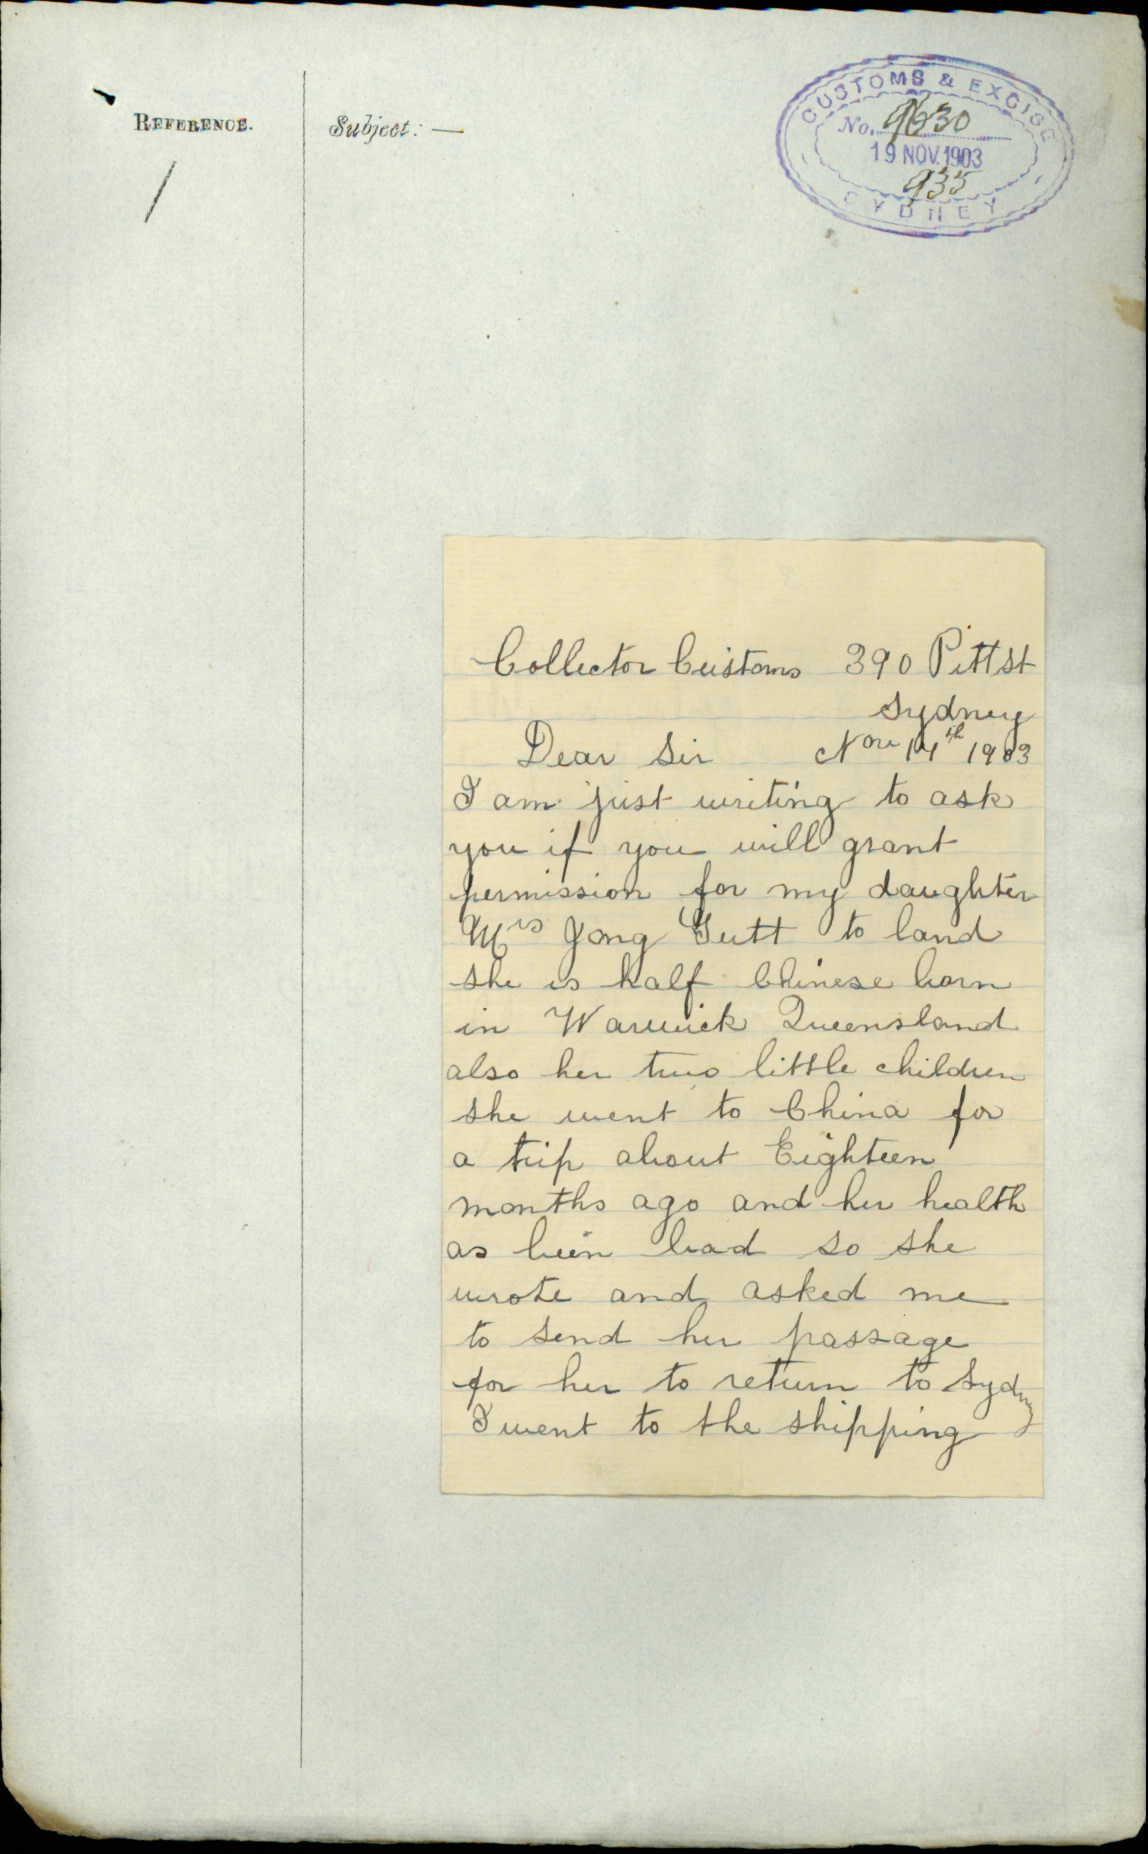 REFERENCE.
Subject: —
CUSTOMS & EXCISE
No. 9630
19 NOV. 1903
935
SYDNEY
Collector Customs 390 Pitt St
Sydney
Dear Sir Nov 14th 1903
I am just writing to ask
you if you will grant
permission for my daughter
Mrs Jong Gutt to land
she is half Chinese born
in Warwick Queensland
also her two little children
she went to China for
a trip about Eighteen
months ago and her health
as been bad so she
wrote and asked me
to send her passage
for her to return to Sydney
I went to the shipping